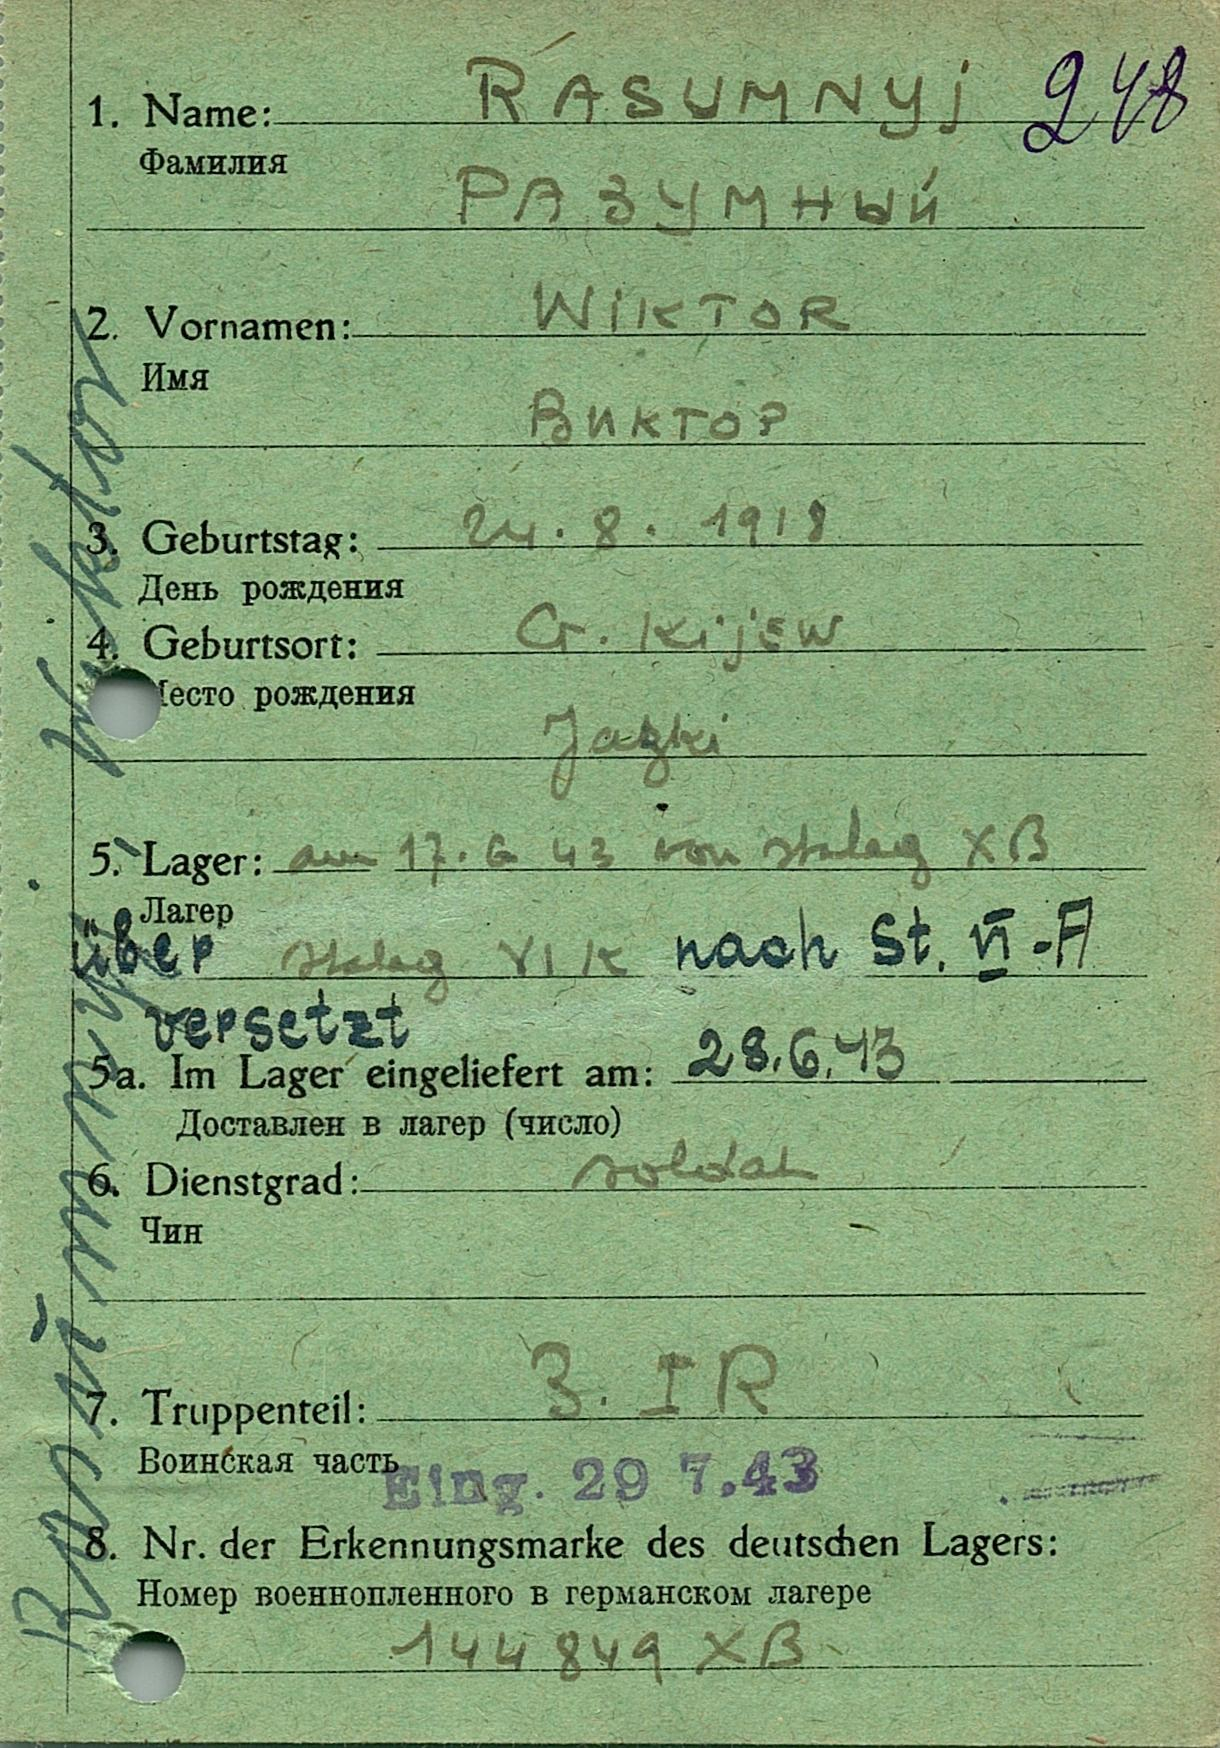 1. Name: RASUMNYj 248
Фамилия
РАЗУМНЫЙ
2. Vornamen: WiKTOR
Имя
ВИКТОР
3. Geburtstag: 24. 8. 1918
День рождения
4. Geburtsort: G. Kijew
Место рождения
Jazki
5. Lager: am 17. 6 43 von Stalag XB
Лагер
über Stalag VI K nach St. VI-A
versetzt
5a. Im Lager eingeliefert am: 28.6.43
Доставлен в лагер (число)
6. Dienstgrad: Soldat
Чин
7. Truppenteil: 3. IR
Воинская часть
Eing. 29 7.43
8. Nr. der Erkennungsmarke des deutschen Lagers:
Номер военнопленного в германском лагере
144849 XB
Rasumnyj. Wiktor